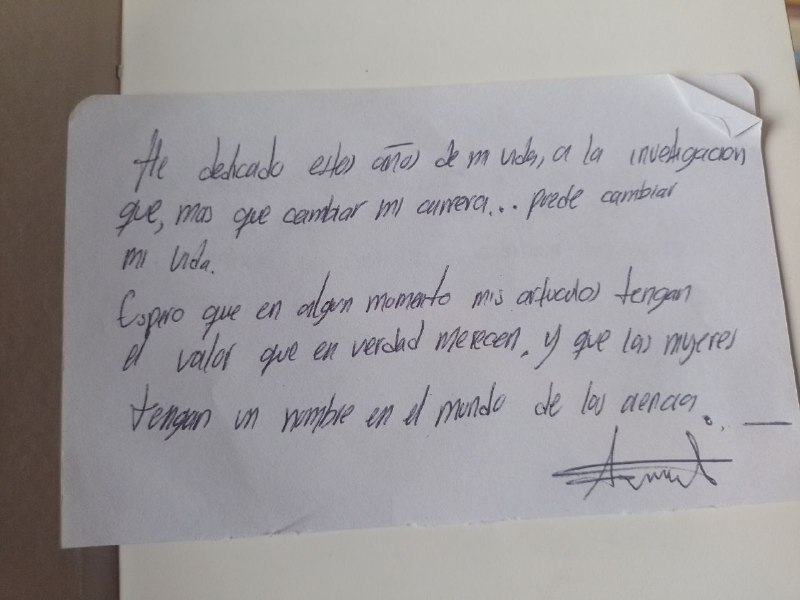 He dedicado estos años de mi vida, a la investigacion
que, mas que cambiar mi carrera... puede cambiar
mi vida.
Espero que en algun momento mis articulos tengan
el valor que en verdad merecen, y que las mujeres
tengan un nombre en el mundo de las ciencias.